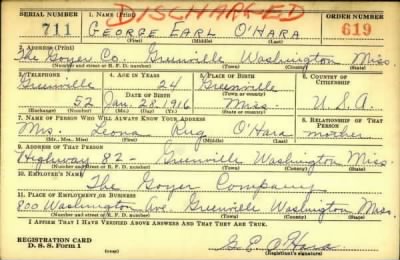 DISCHARGED
SERIAL NUMBER 1. NAME (Print) ORDER NUMBER
711 GEORGE EARL O'HARA 619
(First) (Middle) (Last)
2. ADDRESS (Print)
The Goyer Co. Greenville Washington Miss.
(Number and street or R. F. D. number) (Town) (County) (State)
3. TELEPHONE 4. AGE IN YEARS 5. PLACE OF BIRTH 6. COUNTRY OF CITIZENSHIP
Greenville 24 Greenville
(Exchange) DATE OF BIRTH (Town or county)
52 Jan. 28, 1916 Miss. U.S.A.
(Number) (Mo.) (Day) (Yr.) (State or country)
7. NAME OF PERSON WHO WILL ALWAYS KNOW YOUR ADDRESS 8. RELATIONSHIP OF THAT PERSON
Mrs. Leona O'Hara mother
(Mr., Mrs., Miss) (First) (Middle) (Last)
9. ADDRESS OF THAT PERSON
Highway 82 - Greenville Washington Miss.
(Number and street or R. F. D. number) (Town) (County) (State)
10. EMPLOYER'S NAME
The Goyer Company
11. PLACE OF EMPLOYMENT OR BUSINESS
800 Washington Ave. Greenville Washington Miss.
(Number and street or R. F. D. number) (Town) (County) (State)
I AFFIRM THAT I HAVE VERIFIED ABOVE ANSWERS AND THAT THEY ARE TRUE.
REGISTRATION CARD
D. S. S. Form 1 G. E. O'Hara
(Registrant's signature)